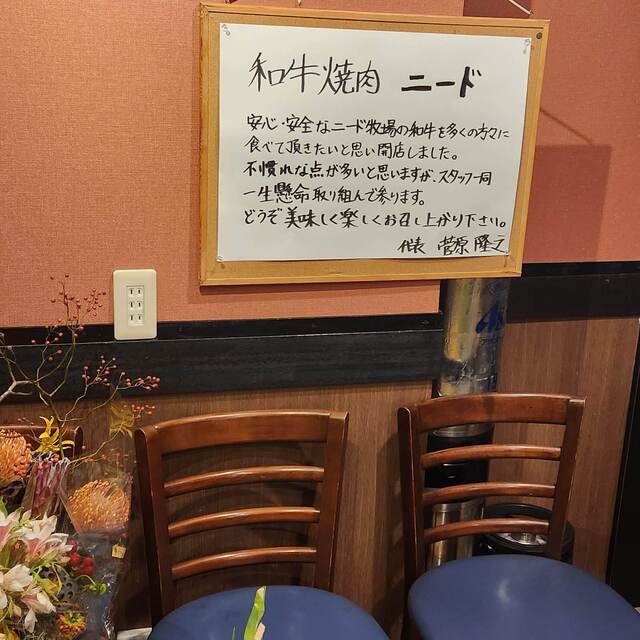 和牛焼肉 ニード
安心・安全なニード牧場の和牛を多くの方々に
食べて頂きたいと思い開店しました。
不慣れな点が多いと思いますが、スタッフ一同
一生懸命取り組んで参ります。
どうぞ美味しく楽しくお召し上がり下さい。
代表 菅原 隆元